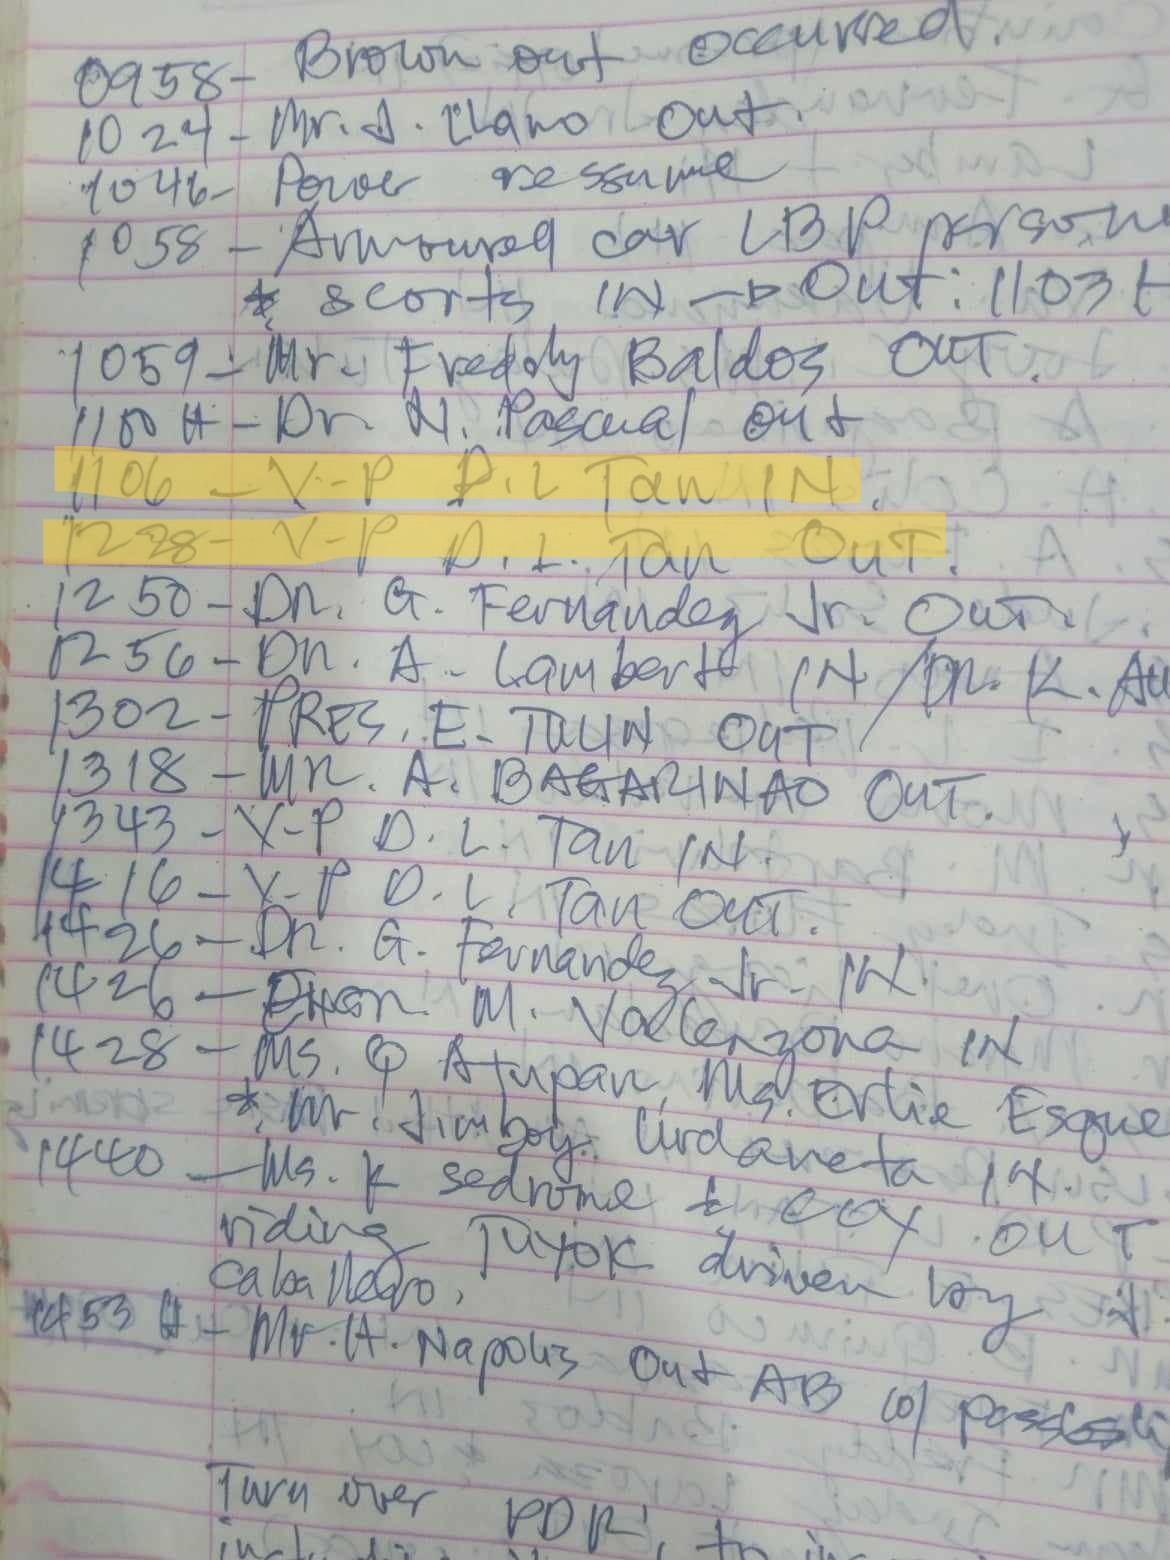 0958- Brown out occurred.
1024- Mr. J. Llano Out.
1046- Power ressume
1058- Armoured car LBP
* scorts IN → Out: 1103 H
1059- Mr. Freddy Baldos OUT.
1100 H- Dr. N. Pascual out
1106 - V-P D.L Tan IN.
1228- V-P D.L. Tan OUT.
1250- Dr. G. Fernandez Jr. OuT.
1256- Dr. A. Lambert IN / Dr. K. Au
1302- PRES. E. TULIN OUT
1318- MR. A. BAGARINAO OUT.
1343- V-P D.L. Tan IN.
1416- V-P D.L. Tan OUT.
1426- Dr. G. Fernandez Jr. IN.
1426- M. Vallenzona IN
1428- Ms. Q Atupan, Ms. Erlie Esgue
* Mr. Jimboy Urdaneta IN.
1440 - Ms. K sedrome & COY OUT
riding TUYOK driven by
Caballero.
1453 H- Mr. H. Napolis Out AB w/
Turn over PDR